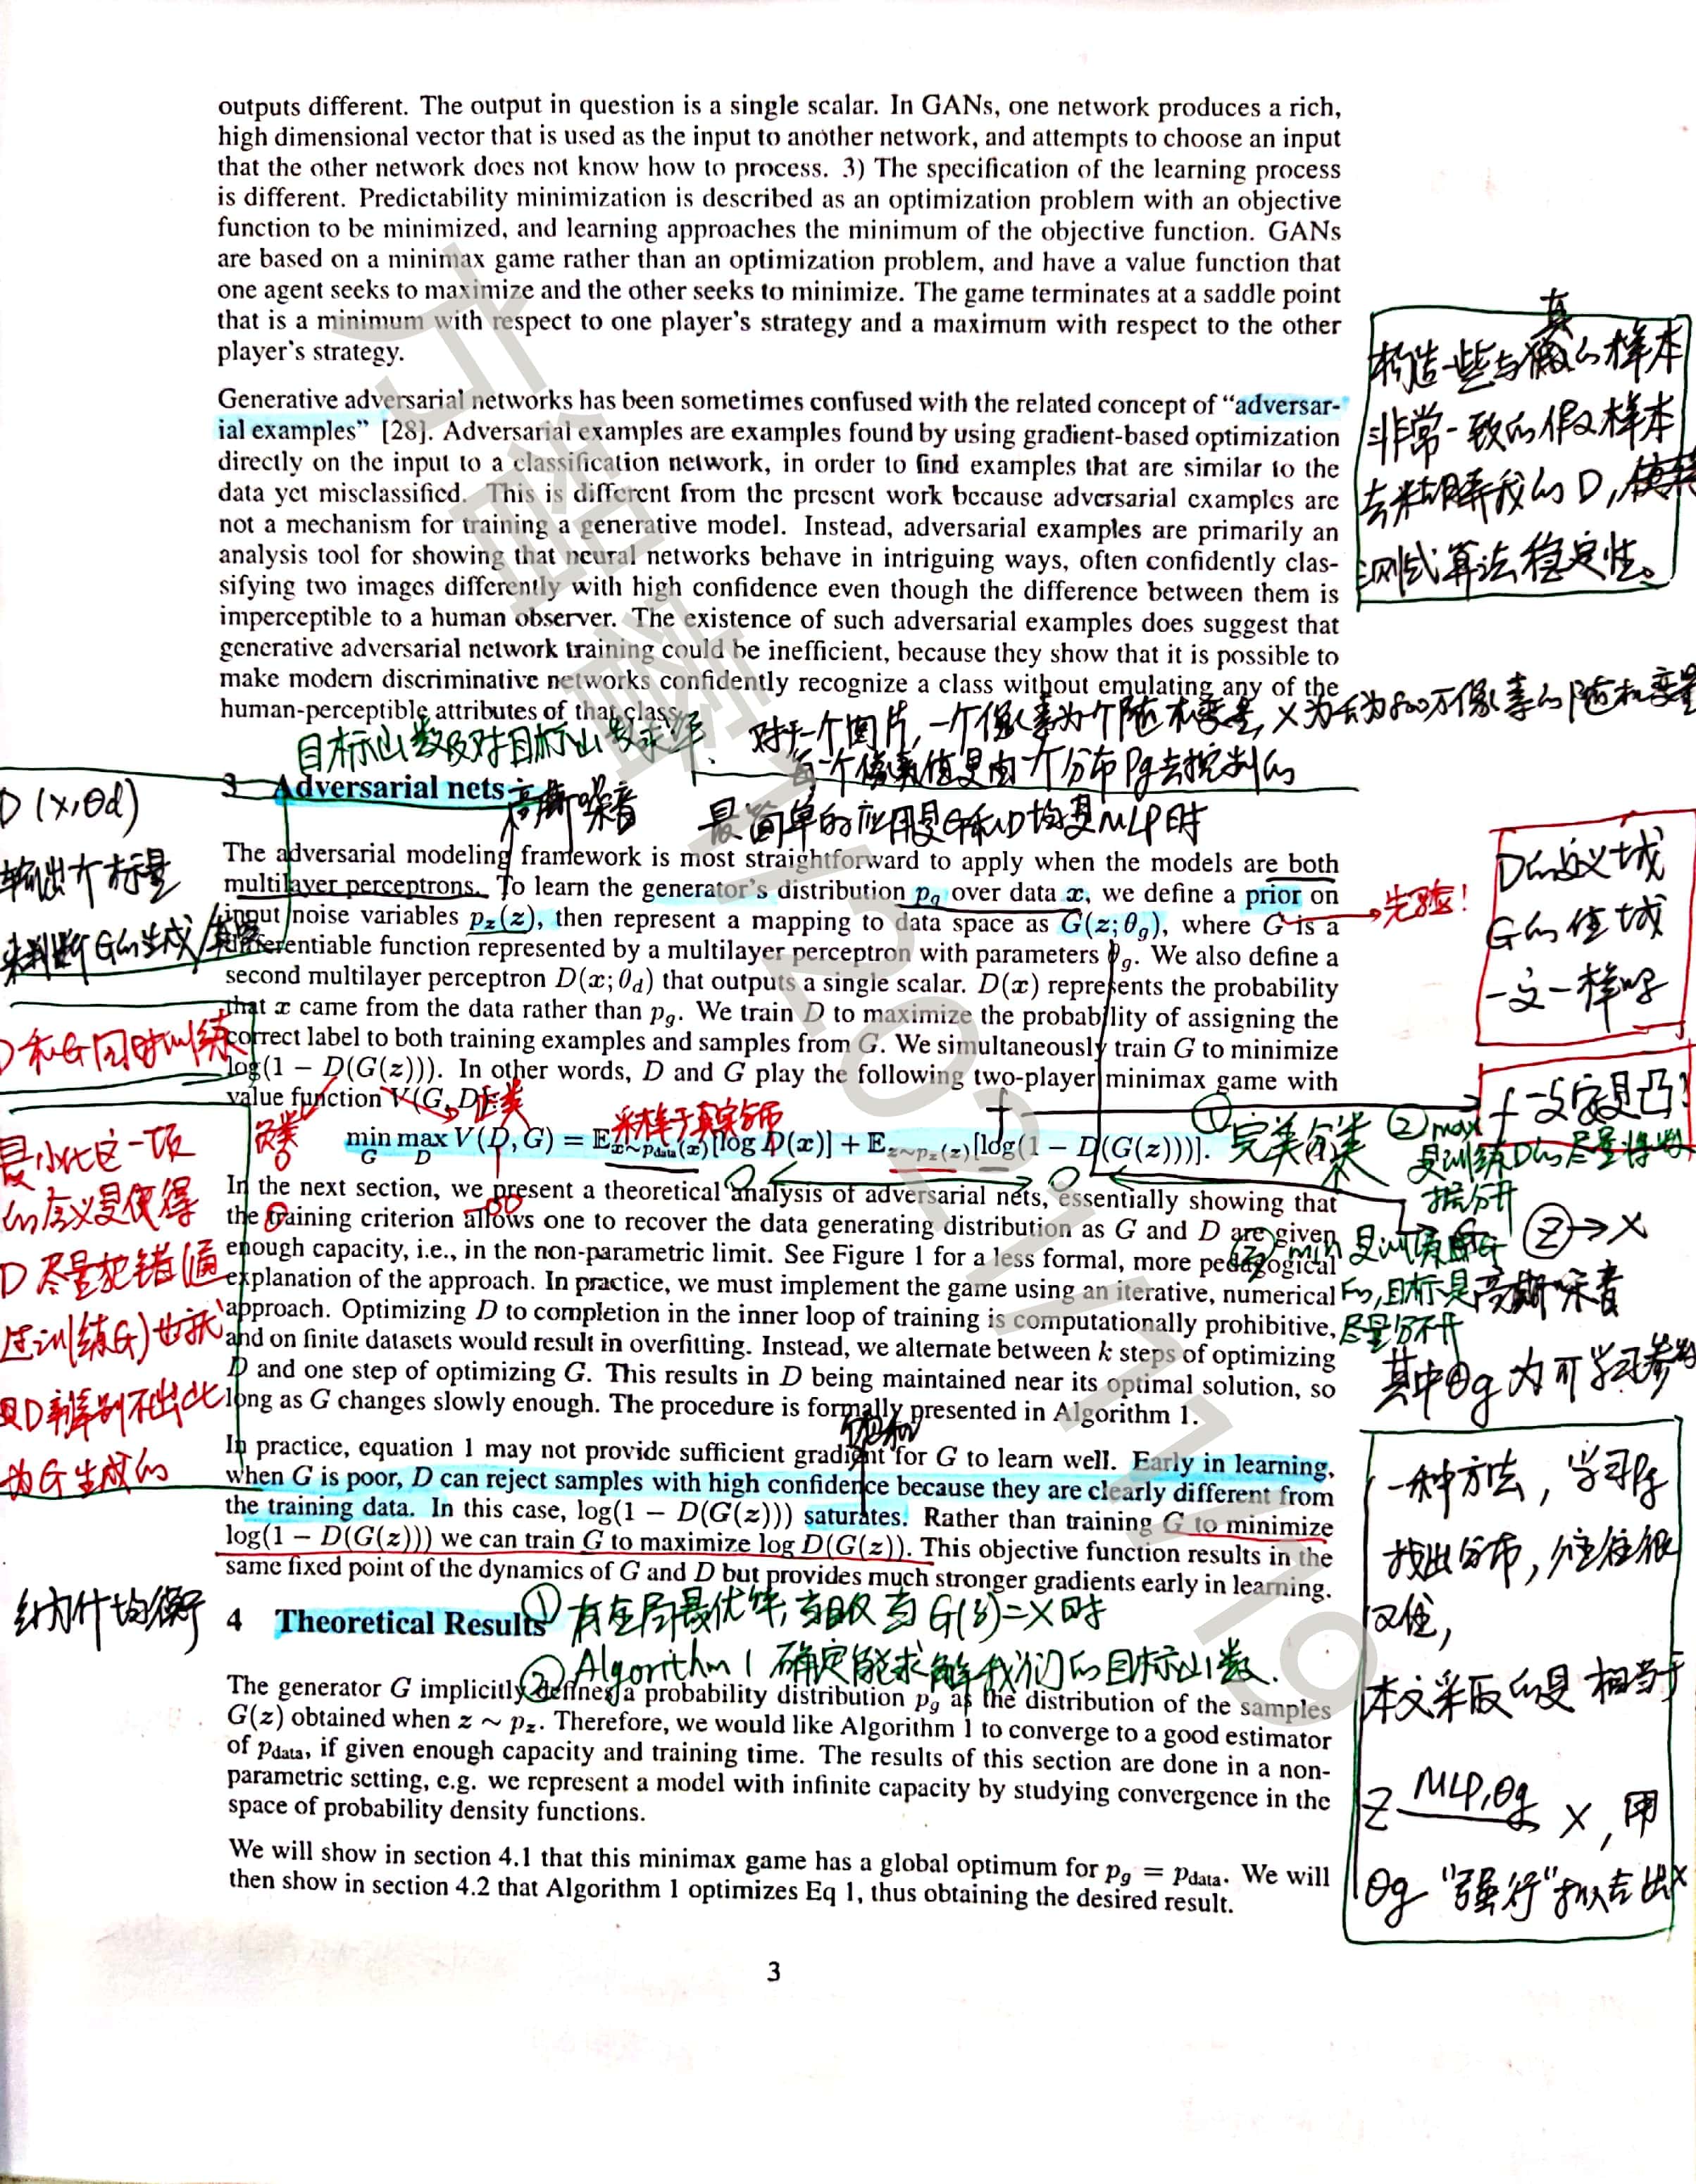 outputs different. The output in question is a single scalar. In GANs, one network produces a rich,
high dimensional vector that is used as the input to another network, and attempts to choose an input
that the other network does not know how to process. 3) The specification of the learning process
is different. Predictability minimization is described as an optimization problem with an objective
function to be minimized, and learning approaches the minimum of the objective function. GANs
are based on a minimax game rather than an optimization problem, and have a value function that
one agent seeks to maximize and the other seeks to minimize. The game terminates at a saddle point
that is a minimum with respect to one player's strategy and a maximum with respect to the other
player's strategy.
真
构造一些与的样本
非常一致的假样本
去糊弄我的D,
测试算法稳定性。
Generative adversarial networks has been sometimes confused with the related concept of “adversar-
ial examples” [28]. Adversarial examples are examples found by using gradient-based optimization
directly on the input to a classification network, in order to find examples that are similar to the
data yet misclassified. This is different from the present work because adversarial examples are
not a mechanism for training a generative model. Instead, adversarial examples are primarily an
analysis tool for showing that neural networks behave in intriguing ways, often confidently clas-
sifying two images differently with high confidence even though the difference between them is
imperceptible to a human observer. The existence of such adversarial examples does suggest that
generative adversarial network training could be inefficient, because they show that it is possible to
make modern discriminative networks confidently recognize a class without emulating any of the
human-perceptible attributes of that class.
对于一个图片,一个像素为个随机变量,X为800万像素的随机变量
每个像素值是由一个分布Pg去控制的
目标函数及对目标函数求解
3 Adversarial nets
高斯噪音
最简单的应用是G和D均是MLP时
D(x,θd)
输出个标量
来判断G的生成
D的定义域
G的值域
一定一样吗
The adversarial modeling framework is most straightforward to apply when the models are both
multilayer perceptrons. To learn the generator's distribution pg over data x, we define a prior on
先验!
input noise variables pz(z), then represent a mapping to data space as G(z; θg), where G is a
differentiable function represented by a multilayer perceptron with parameters θg. We also define a
second multilayer perceptron D(x; θd) that outputs a single scalar. D(x) represents the probability
that x came from the data rather than pg. We train D to maximize the probability of assigning the
correct label to both training examples and samples from G. We simultaneously train G to minimize
log(1 − D(G(z))). In other words, D and G play the following two-player minimax game with
value function V(G, D):
D和G同时训练
正类
采样于真实分布
f
f一定是凸?
min G max D V(D, G) = E x∼pdata(x)[log D(x)] + E z∼pz(z)[log(1 − D(G(z)))].
①完美分类
②max
是训练D的尽量将数
据分开
min是训练G
目标是
尽量分不开
Ⓩ→X
高斯噪音
其中θg为可学习参数
最小化这一项
的含义是使得
D尽量犯错(通
过训练G)也就
是D辨别不出此
为G生成的
In the next section, we present a theoretical analysis of adversarial nets, essentially showing that
the training criterion allows one to recover the data generating distribution as G and D are given
enough capacity, i.e., in the non-parametric limit. See Figure 1 for a less formal, more pedagogical
explanation of the approach. In practice, we must implement the game using an iterative, numerical
approach. Optimizing D to completion in the inner loop of training is computationally prohibitive,
and on finite datasets would result in overfitting. Instead, we alternate between k steps of optimizing
D and one step of optimizing G. This results in D being maintained near its optimal solution, so
long as G changes slowly enough. The procedure is formally presented in Algorithm 1.
饱和
In practice, equation 1 may not provide sufficient gradient for G to learn well. Early in learning,
when G is poor, D can reject samples with high confidence because they are clearly different from
the training data. In this case, log(1 − D(G(z))) saturates. Rather than training G to minimize
log(1 − D(G(z))) we can train G to maximize log D(G(z)). This objective function results in the
same fixed point of the dynamics of G and D but provides much stronger gradients early in learning.
一种方法,学习
找出分布,往往很
本文采取的是相当于
Z MLP,θg X,用
θg“强行”拟合出X
纳什均衡
4 Theoretical Results
①有全局最优解,当且仅当G(z)=X时
②Algorithm 1 确定能求解我们的目标函数.
The generator G implicitly defines a probability distribution pg as the distribution of the samples
G(z) obtained when z ∼ pz. Therefore, we would like Algorithm 1 to converge to a good estimator
of pdata, if given enough capacity and training time. The results of this section are done in a non-
parametric setting, e.g. we represent a model with infinite capacity by studying convergence in the
space of probability density functions.
We will show in section 4.1 that this minimax game has a global optimum for pg = pdata. We will
then show in section 4.2 that Algorithm 1 optimizes Eq 1, thus obtaining the desired result.
3
2021/11/19